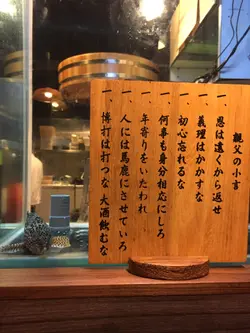 親父の小言
一、恩は遠くから返せ
一、義理はかかすな
一、初心忘れるな
一、何事も身分相応にしろ
一、年寄りをいたわれ
一、人には馬鹿にされていろ
一、博打は打つな 大酒飲むな